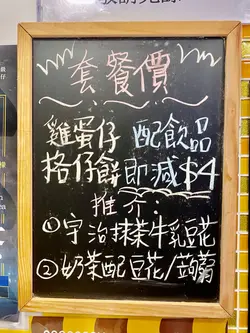 套餐價
雞蛋仔 配飲品
格仔餅即減$4
推介:
①宇治抹茶牛乳豆花
②奶茶配豆花/蒟蒻